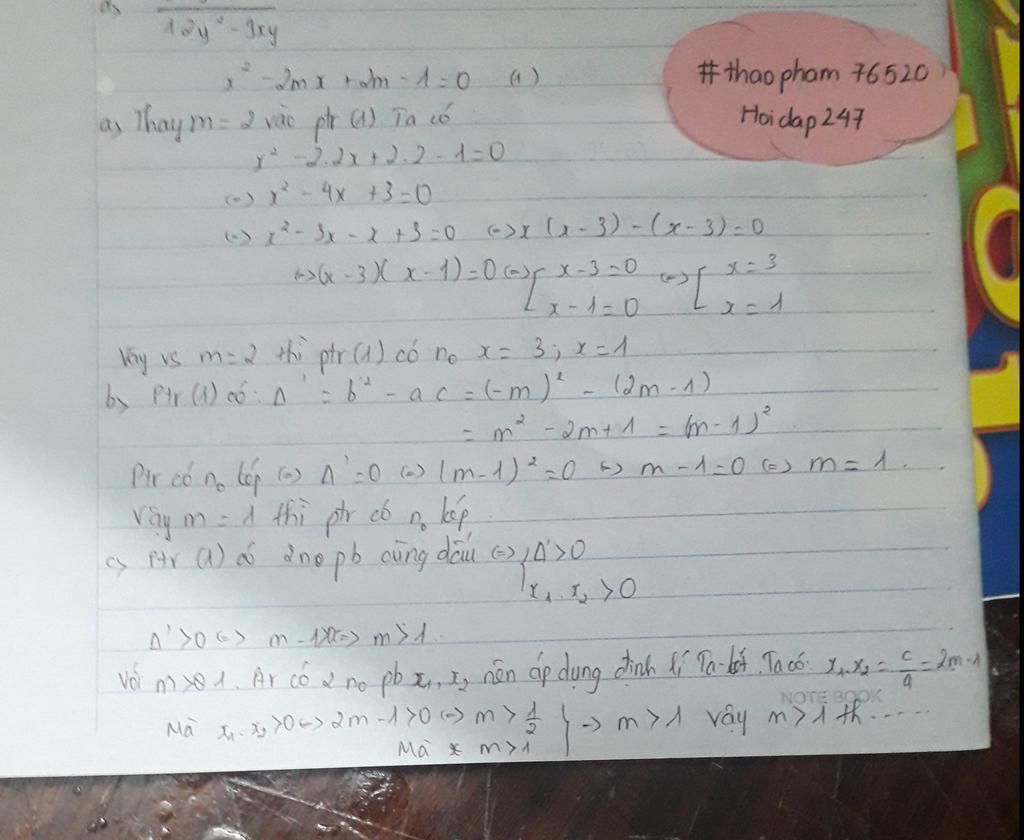 12y² - 3xy
x² - 2mx + 2m - 1 = 0 (1)
#thaopham 76520
Hoidap247
a, Thay m = 2 vào ptr (1) Ta có
x² - 2.2x + 2.2 - 1 = 0
(=) x² - 4x + 3 = 0
(=) x² - 3x - x + 3 = 0 (=) x (x - 3) - (x - 3) = 0
(=) (x - 3)(x - 1) = 0 (=) [ x - 3 = 0 (=) [ x = 3
x - 1 = 0 x = 1
Vậy vs m = 2 thì ptr (1) có no x = 3 ; x = 1
b, Ptr (1) có : Δ' = b'² - ac = (-m)² - (2m - 1)
= m² - 2m + 1 = (m - 1)²
Ptr có no kép (=) Δ' = 0 (=) (m - 1)² = 0 (=) m - 1 = 0 (=) m = 1 .
Vậy m = 1 thì ptr có no kép
c, Ptr (1) có 2 no pb cùng dấu (=) { Δ' > 0
x₁ . x₂ > 0
Δ' > 0 (=) m - 1 (=) m > 1 .
Với m > 1 . có 2 no pb x₁, x₂ nên áp dụng định lí Ta-lét . Ta có : x₁.x₂ = c/a = 2m - 1
NOTE BOOK
Mà x₁ . x₂ > 0 (=) 2m - 1 > 0 (=) m > 1/2 } → m > 1 vậy m > 1 th .....
Mà m > 1